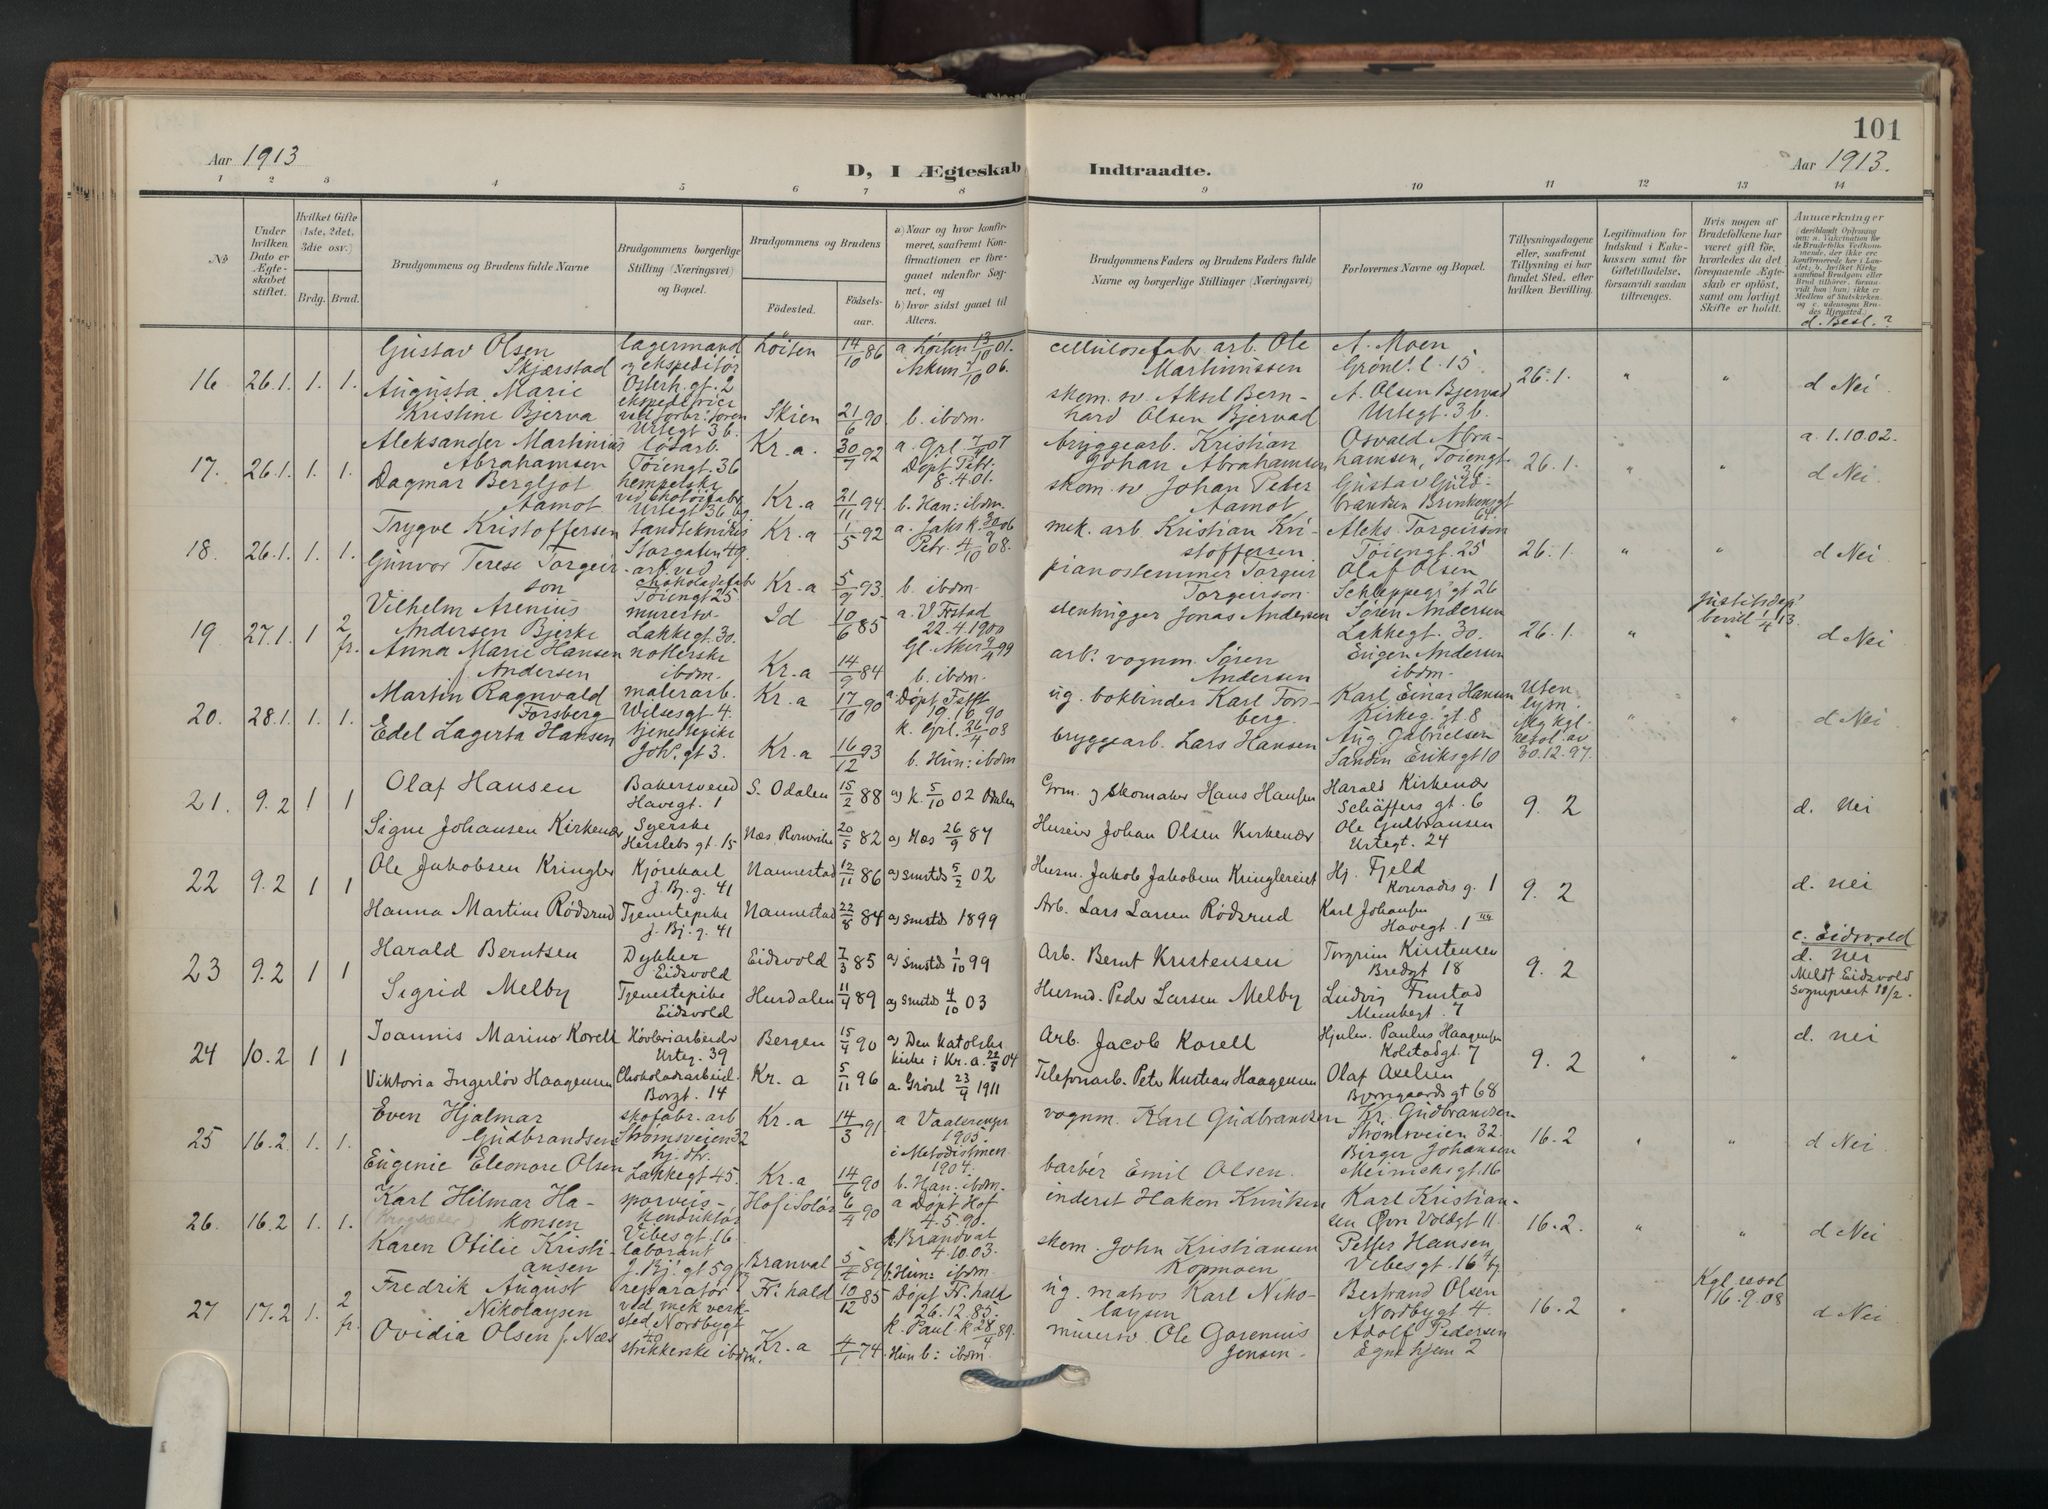 101
Aar 1913
D, I Ægteskab Indtraadte.
Aar 1913.
1 2 3 3 4 5 6 7 8 9 10 11 12 13 14
No
Under hvilken Dato er Ægteskabet stiftet.
Hvilket Gifte (1ste, 2det, 3die osv.)
Brdg. Brud.
Brudgommens og Brudens fulde Navne
Brudgommens borgerlige Stilling (Næringsvei) og Bopæl.
Brudgommens og Brudens
Fødested.
Fødselsaar.
a) Naar og hvor konfirmeret, saafremt Konfirmationen er foregaaet udenfor Sognet, og
b) hvor sidst gaaet til Alters.
Brudgommens Faders og Brudens Faders fulde Navne og borgerlige Stillinger (Næringsvei)
Forlovernes Navne og Bopæl.
Tillysningsdagene eller, saafremt Tillysning ei har fundet Sted, efter hvilken Bevilling.
Legitimation for Indskud i Enkekassen samt for Giftetilladelse, forsaavidt saadan tiltrænges.
Hvis nogen af Brudefolkene har været gift før, hvorledes da det foregaaende Ægteskab er opløst, samt om lovligt Skifte er holdt.
Anmærkninger
d. Besl.?
16 26.1. 1. 1.
Gustav Olsen Skjærstad
lagermand og ekspeditør Osterh.gt. 2
Løiten 14/10 86
a. Løiten 13/10 01.
cellulosefabr. arb. Ole Martinussen
A. Moen Grønl. l. 15
26.1. " " d Nei
Augusta Marie Kristine Bjerva
Urtegt 36.
Skien 21/6 90
b. ibdm.
skom. sv. Aksel Bernhard Olsen Bjervad
A. Olsen Bjervad Urtegt. 36.
17. 26.1. 1. 1.
Aleksander Martinius Abrahamsen
Tøiengt. 36
Kr.a. 30/7 92
Døpt Petr. 8.4.01.
bryggearb. Kristian Johan Abrahamsen
Osvald Abrahamsen, Tøiengt. 36
26.1. " " a. 1.10.02. d Nei
Dagmar Bergljot Aamot
Kr.a 21/11 94.
b. Han: ibdm.
skom. sv Johan Peder Aamot
18. 26.1. 1. 1.
Trygve Kristoffersen
tandtekniker Storgaten 49.
Kr.a 1/5 92
Petr. 4/10 08.
mek. arb. Kristian Kristoffersen
Aleks. Torgeirson Tøiengt. 25
26.1. " " d Nei
Gunvor Terese Torgeirson
arb. ved chokoladefabr Tøiengt 25
Kr.a 5/9 93
b. ibdm.
pianostemmer Torgeir Torgeirson
Olaf Olsen Schleppegr. gt 26
19. 27.1. 1 2 fr.
Vilhelm Arenius Andersen Bjerke
murersv. Lakkegt. 30.
Id 10/6 85
22.4.1900
stenhugger Jonas Andersen
Søren Andersen Lakkegt. 30.
26.1. " " d Nei
Anna Marie Hansen f. Andersen
ibdm.
Kr.a 14/9 84
Gl. Aker
b. ibdm.
arb. vognm. Søren Andersen
Eugen Andersen ibdm.
20. 28.1. 1. 1.
Martin Ragnvald Forsberg
malerarb. Wilsesgt 4.
Kr.a 17/10 90
ug. bokbinder Karl Forsberg.
Karl Einar Hansen Kirkeg. gt 8
Uten lysn. Mg kgl. resol. av 30.12.97.
" " d Nei
Edel Lagerta Hansen
tjenestepike Joh. gt 3.
Kr.a 16/12 93
b. Hun: ibdm
bryggearb. Lars Hansen
Aug Gabrielsen Sandin Eriksgt 10
21. 9.2 1 1
Olaf Hansen
Bakersvend Havegt. 1
S. Odalen 15/2 88
a) k. 5/10 02 Odalen
Grm. og skomaker Hans Hansen
Harald Kirkenær Schäffers gt. 6
9. 2 d. nei
Signe Johansen Kirkenær
Syerske Herslebs gt. 15
Næs Romerike 20/5 82
a) Næs 26/9 87
Huseier Johan Olsen Kirkenær
Ole Gulbransen Urtegt. 24
22 9.2 1 1
Ole Jakobsen Kringler
Kjørekarl J. Bj. g. 41
Nannestad 12/11 86
a) smstds 5/2 02
Husm. Jakob Jakobsen Kringlereiet
Hj. Fjeld Konrads g. 1
9. 2 d. nei
Hanna Martine Rødsrud
Tjenestepike J. Bj. g. 41
Nannestad 22/8 84
a) smstd 1899
Arb. Lars Larsen Rødsrud
Karl Johansen Havegt. 1
23 9.2 1 1
Harald Berntsen
Dykker Eidsvold
Eidsvold 7/3 85
a) smstds 1/10 99
Arb. Bernt Kristensen
Torgrim Kristensen Bredgt 18
9. 2
c. Eidsvold d. Nei Meldt Eidsvold Sogneprest 11/2.
Sigrid Melby
Tjenestepike Eidsvold
Hurdalen 11/4 89
a) smstds 4/10 03
Husmd. Peder Larsen Melby
Ludvig Frustad
24 10.2 1 1
Joannis Marino Korell
Høvleriarbeider Urteg. 39
Bergen 15/4 90
a) Den katolske kirke i Kr.a. 22/5 04
Arb. Jacob Korell
Hjulm. Paulus Haagensen Kolstadgt. 7
9. 2 " " d. nei
Viktoria Ingerløv Haagensen
Chokoladearbeid. Borgt. 14
Kr. a 5/11 96
a. Grønl 23/4 1911
Telefonarb. Peter Kristian Haagensen
Olaf Axelsen Borregaards gt 68
25 16.2 1. 1.
Even Hjalmar Gudbrandsen
skofabr. arb Strømsveien 32
Kr.a 14/3 91
a Vaalerengen 1905.
vognm. Karl Gudbrandsen
Kr. Gudbrandsen Strømsveien 32.
16.2 " " d Nei
Eugenie Eleonore Olsen
Lakkegt 45.
Kr.a 14/6 90
i Metodistmen. 1904.
b. Han: ibdm.
barbér Emil Olsen.
Birger Johansen Meinichsgt. 16
26. 16.2 1. 1.
Karl Hilmar Hakonsen
sporveiskonduktør Vibesgt 16
Hof i Solør 6/4 90
a Døpt Hof 4.5.90.
k. Brandval 4.10.03.
inderst Hakon Knutsen
Karl Kristiansen Øvn Voldgt 11.
16.2. " " d Nei
Karen Otilie Kristiansen
laborant J. Bj. gt 59
Branval 5/4 89
b. Hun: ibdm.
skom. John Kristiansen Kopmoen
Petter Hansen Vibesgt. 16
27 17.2 1. 2 fr.
Fredrik August Nikolaysen
reparatør ved mek verksted Nordbygt 40
Fr. hald 10/12 85
Døpt Fr. hald 26.12.85.
k. Paul k 28/4 89.
ug. matros Karl Nikolaysen
Bertrand Olsen Nordbygt 4.
16.2 " Kgl. resol 16.9.08 d Nei
Ovidia Olsen f. Næs
strikkerske ibdm.
Kr.a 4/1 74
Hun b: ibdm.
murersv. Ole Gorenius Jensen
Adolf Pedersen Egne hjem 2